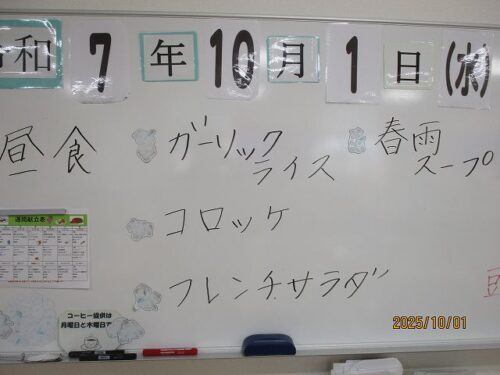 令和 7 年 10 月 1 日 (水)
昼食
ガーリック
ライス
春雨
スープ
コロッケ
フレンチサラダ
週間献立表
コーヒー提供は
月曜日と木曜日で
2025/10/01